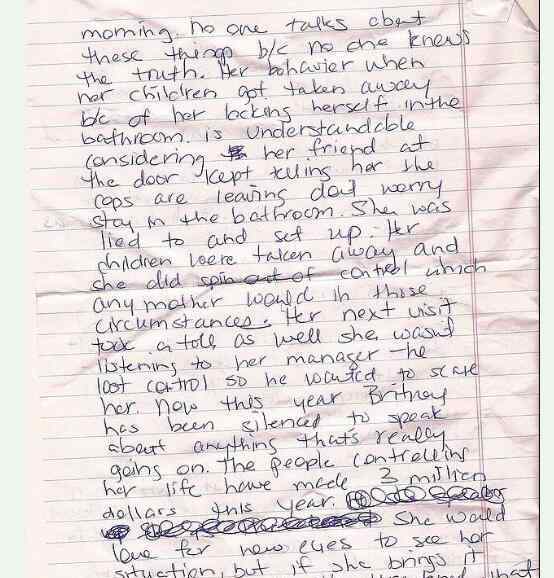 morning. no one talks about
these things b/c no one knows
the truth. Her behavior when
her children got taken away
b/c of her locking herself in the
bathroom. is understandable
considering her friend at
the door kept telling her the
cops are leaving don't worry
stay in the bathroom. She was
lied to and set up. Her
children were taken away and
she did spin out of control which
any mother would in those
circumstances. Her next visit
took a toll as well she wasn't
listening to her manager - he
lost control so he wanted to scare
her. Now this year Britney
has been silenced to speak
about anything that's really
going on. The people controlling
her life have made 3 million
dollars this year.
She would
love for new eyes to see her
situation, but if she brings it
that